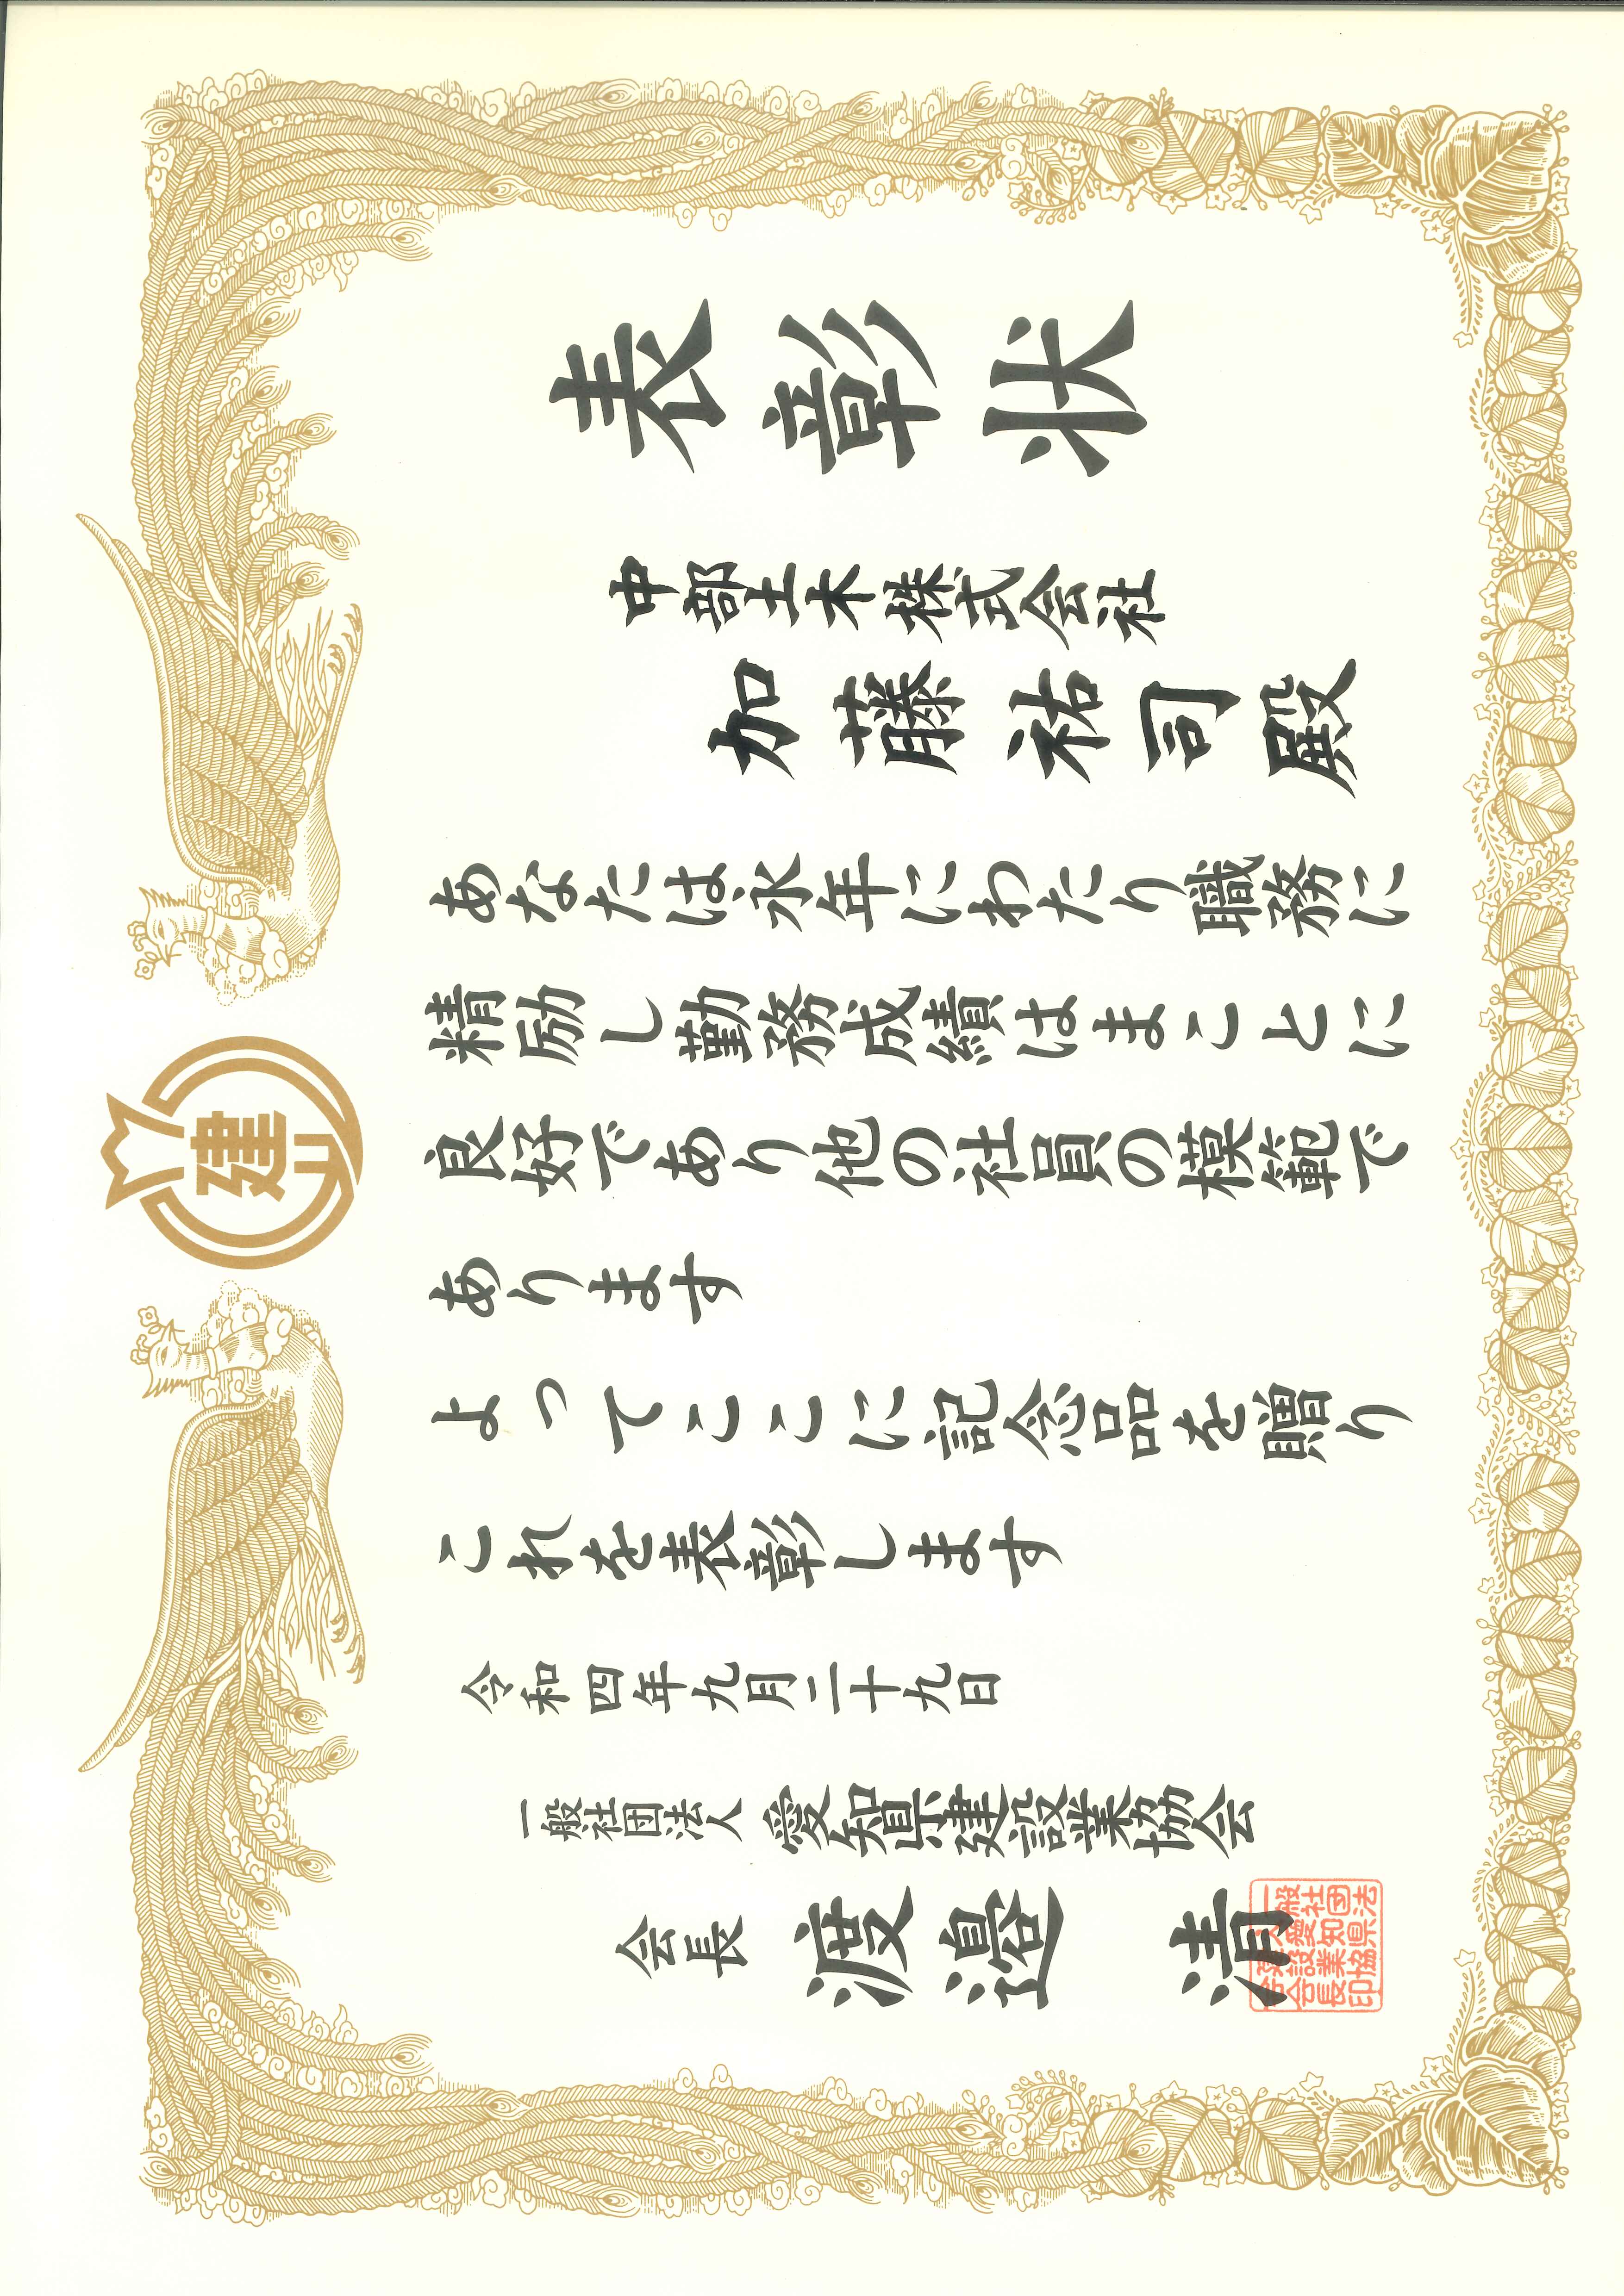 表彰状
中部土木株式会社
加藤祐司殿
あなたは永年にわたり職務に
精励し勤務成績はまことに
良好であり他の社員の模範で
あります
よってここに記念品を贈り
これを表彰します
令和四年九月二十九日
一般社団法人 愛知県建設業協会
会長 渡邉 清
建